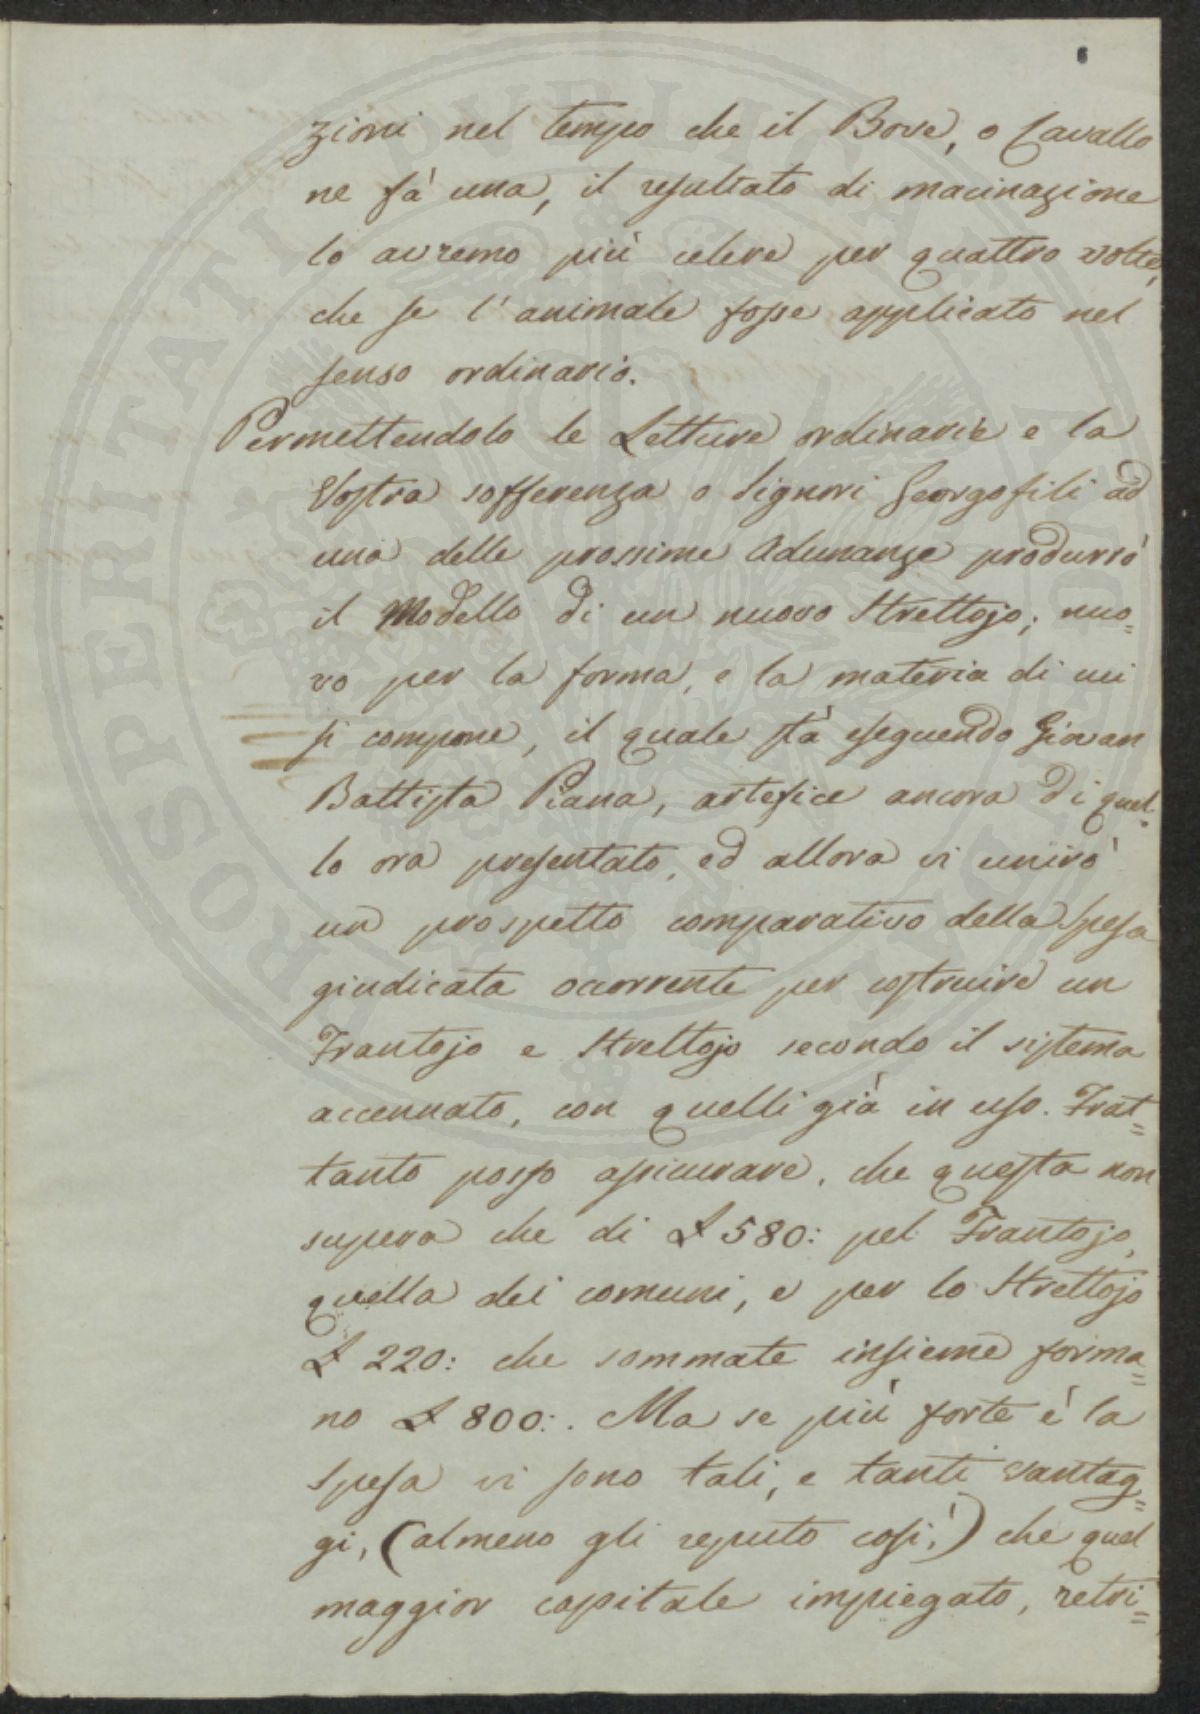 6
zioni nel tempo che il Bove, o Cavallo
ne fà una, il resultato di macinazione
lo avremo più celere per quattro volte,
che se l'animale fosse applicato nel
senso ordinario.
Permettendolo le Letture ordinarie e la
Vostra sofferenza o Signori Georgofili ad
una delle prossime Adunanze produrrò
il Modello di un nuovo Strettojo; nuo=
vo per la forma, e la materia di cui
si compone, il quale stà eseguendo Giovan
Battista Piana, artefice ancora di quel=
lo ora presentato, ed allora vi unirò
un prospetto comparativo della Spesa
giudicata ocorrente per costruire un
Frantojo e Strettojo secondo il sistema
accennato, con quelli già in uso. Frat=
tanto posso assicurare, che questa non
supera che di £ 580: pel Frantojo,
quella dei comuni, e per lo Strettojo
£ 220: che sommate insieme forma=
no £ 800:. Ma se più forte è la
spesa vi sono tali, e tanti vantag=
gi, (almeno gli reputo così,) che quel
maggior capitale impiegato, retri=
PROSPERITATI PVBLICAE AVGENDAE